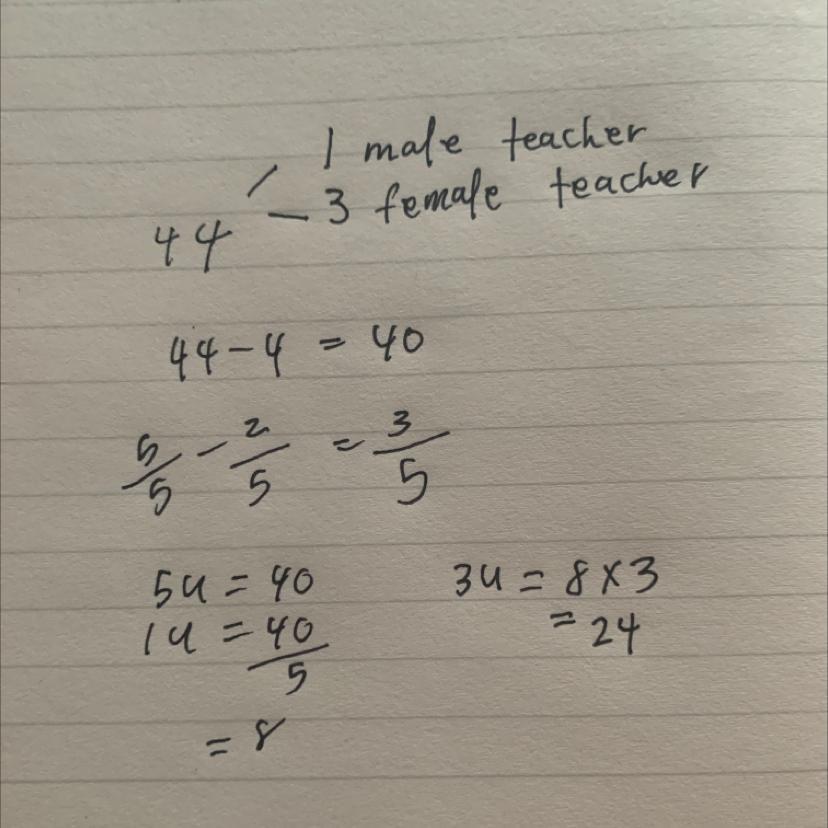 1 male teacher
44 - 3 female teacher
44 - 4 = 40
5/5 - 2/5 = 3/5
5u = 40
1u = 40/5
= 8
3u = 8 x 3
= 24